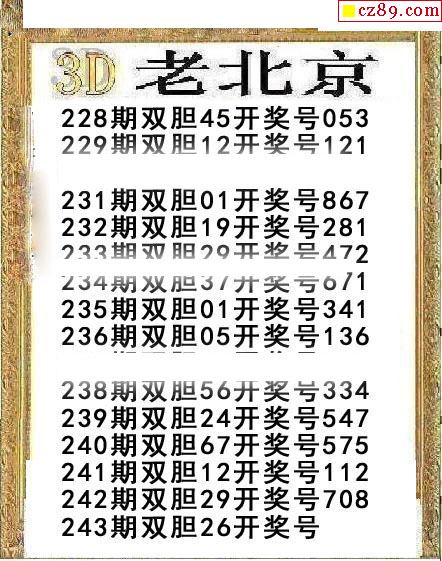 cz89.com
3D 老北京
228期双胆45开奖号053
229期双胆12开奖号121
231期双胆01开奖号867
232期双胆19开奖号281
233期双胆29开奖号472
234期双胆37开奖号671
235期双胆01开奖号341
236期双胆05开奖号136
238期双胆56开奖号334
239期双胆24开奖号547
240期双胆67开奖号575
241期双胆12开奖号112
242期双胆29开奖号708
243期双胆26开奖号